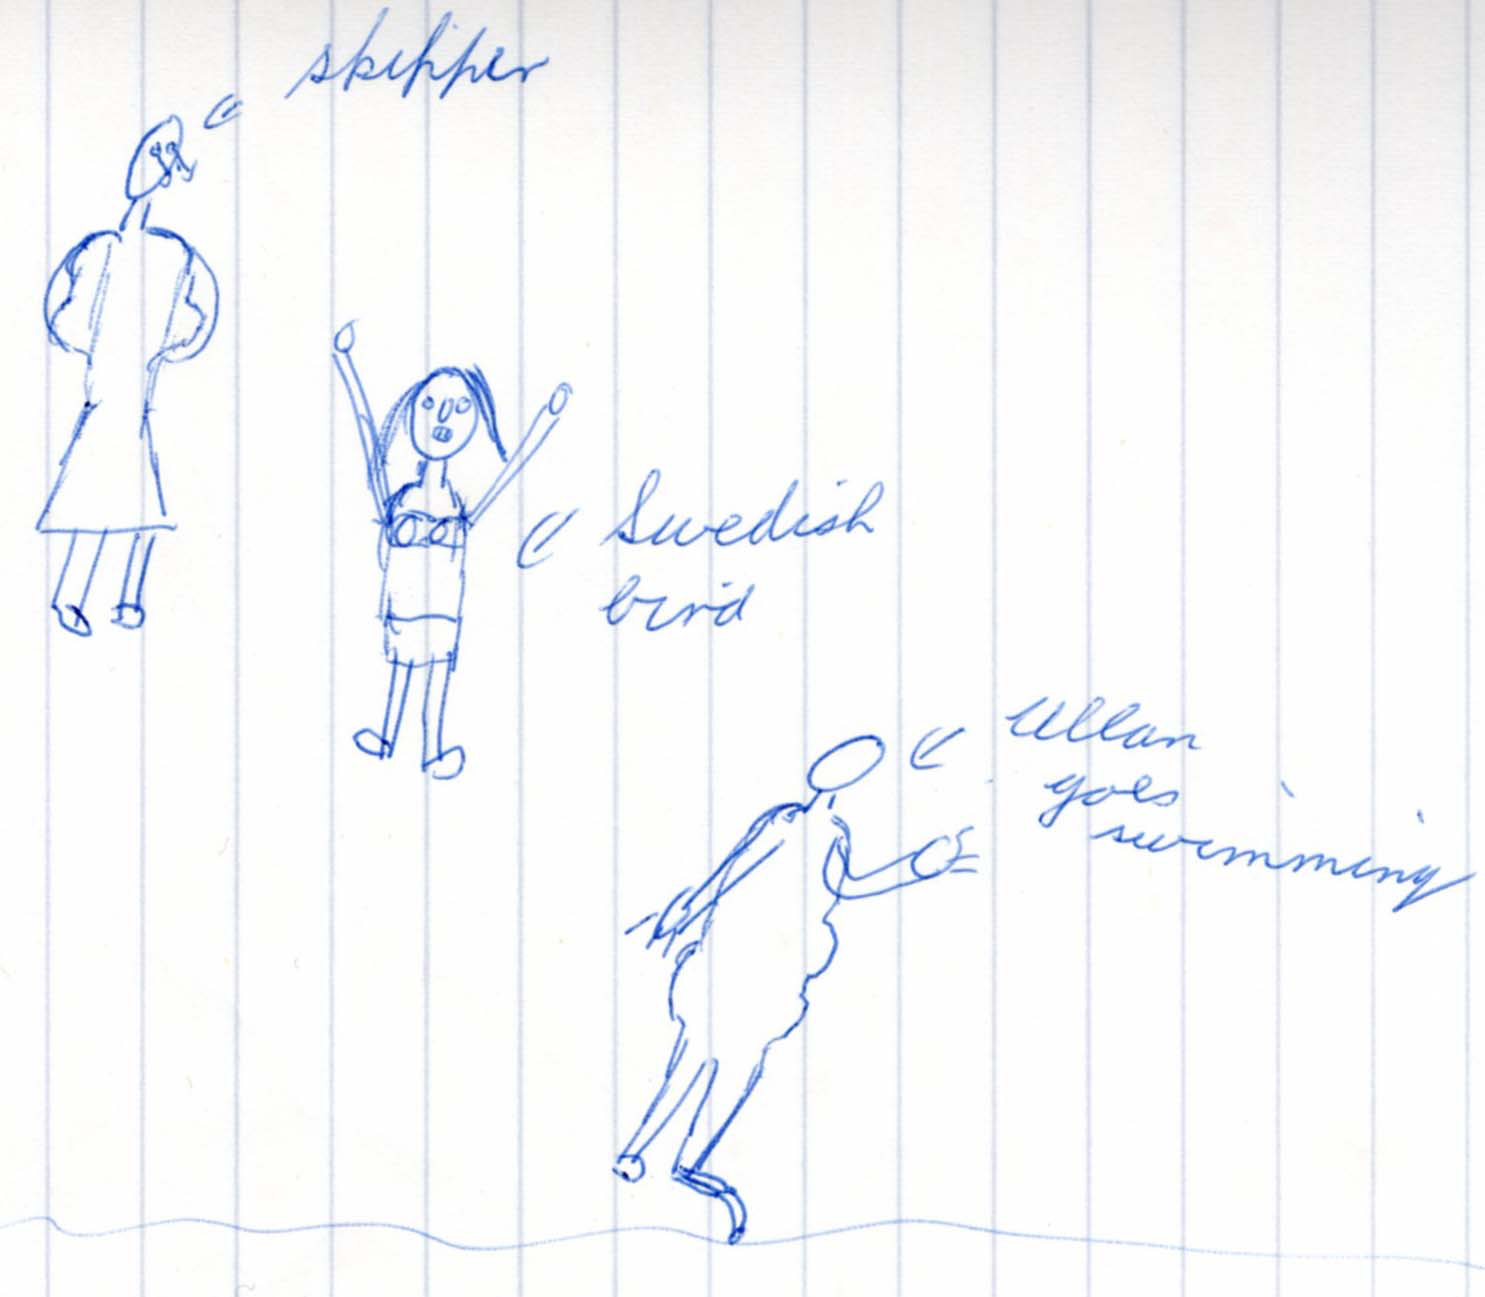 skipper
Swedish
bird
Allan
goes
swimming